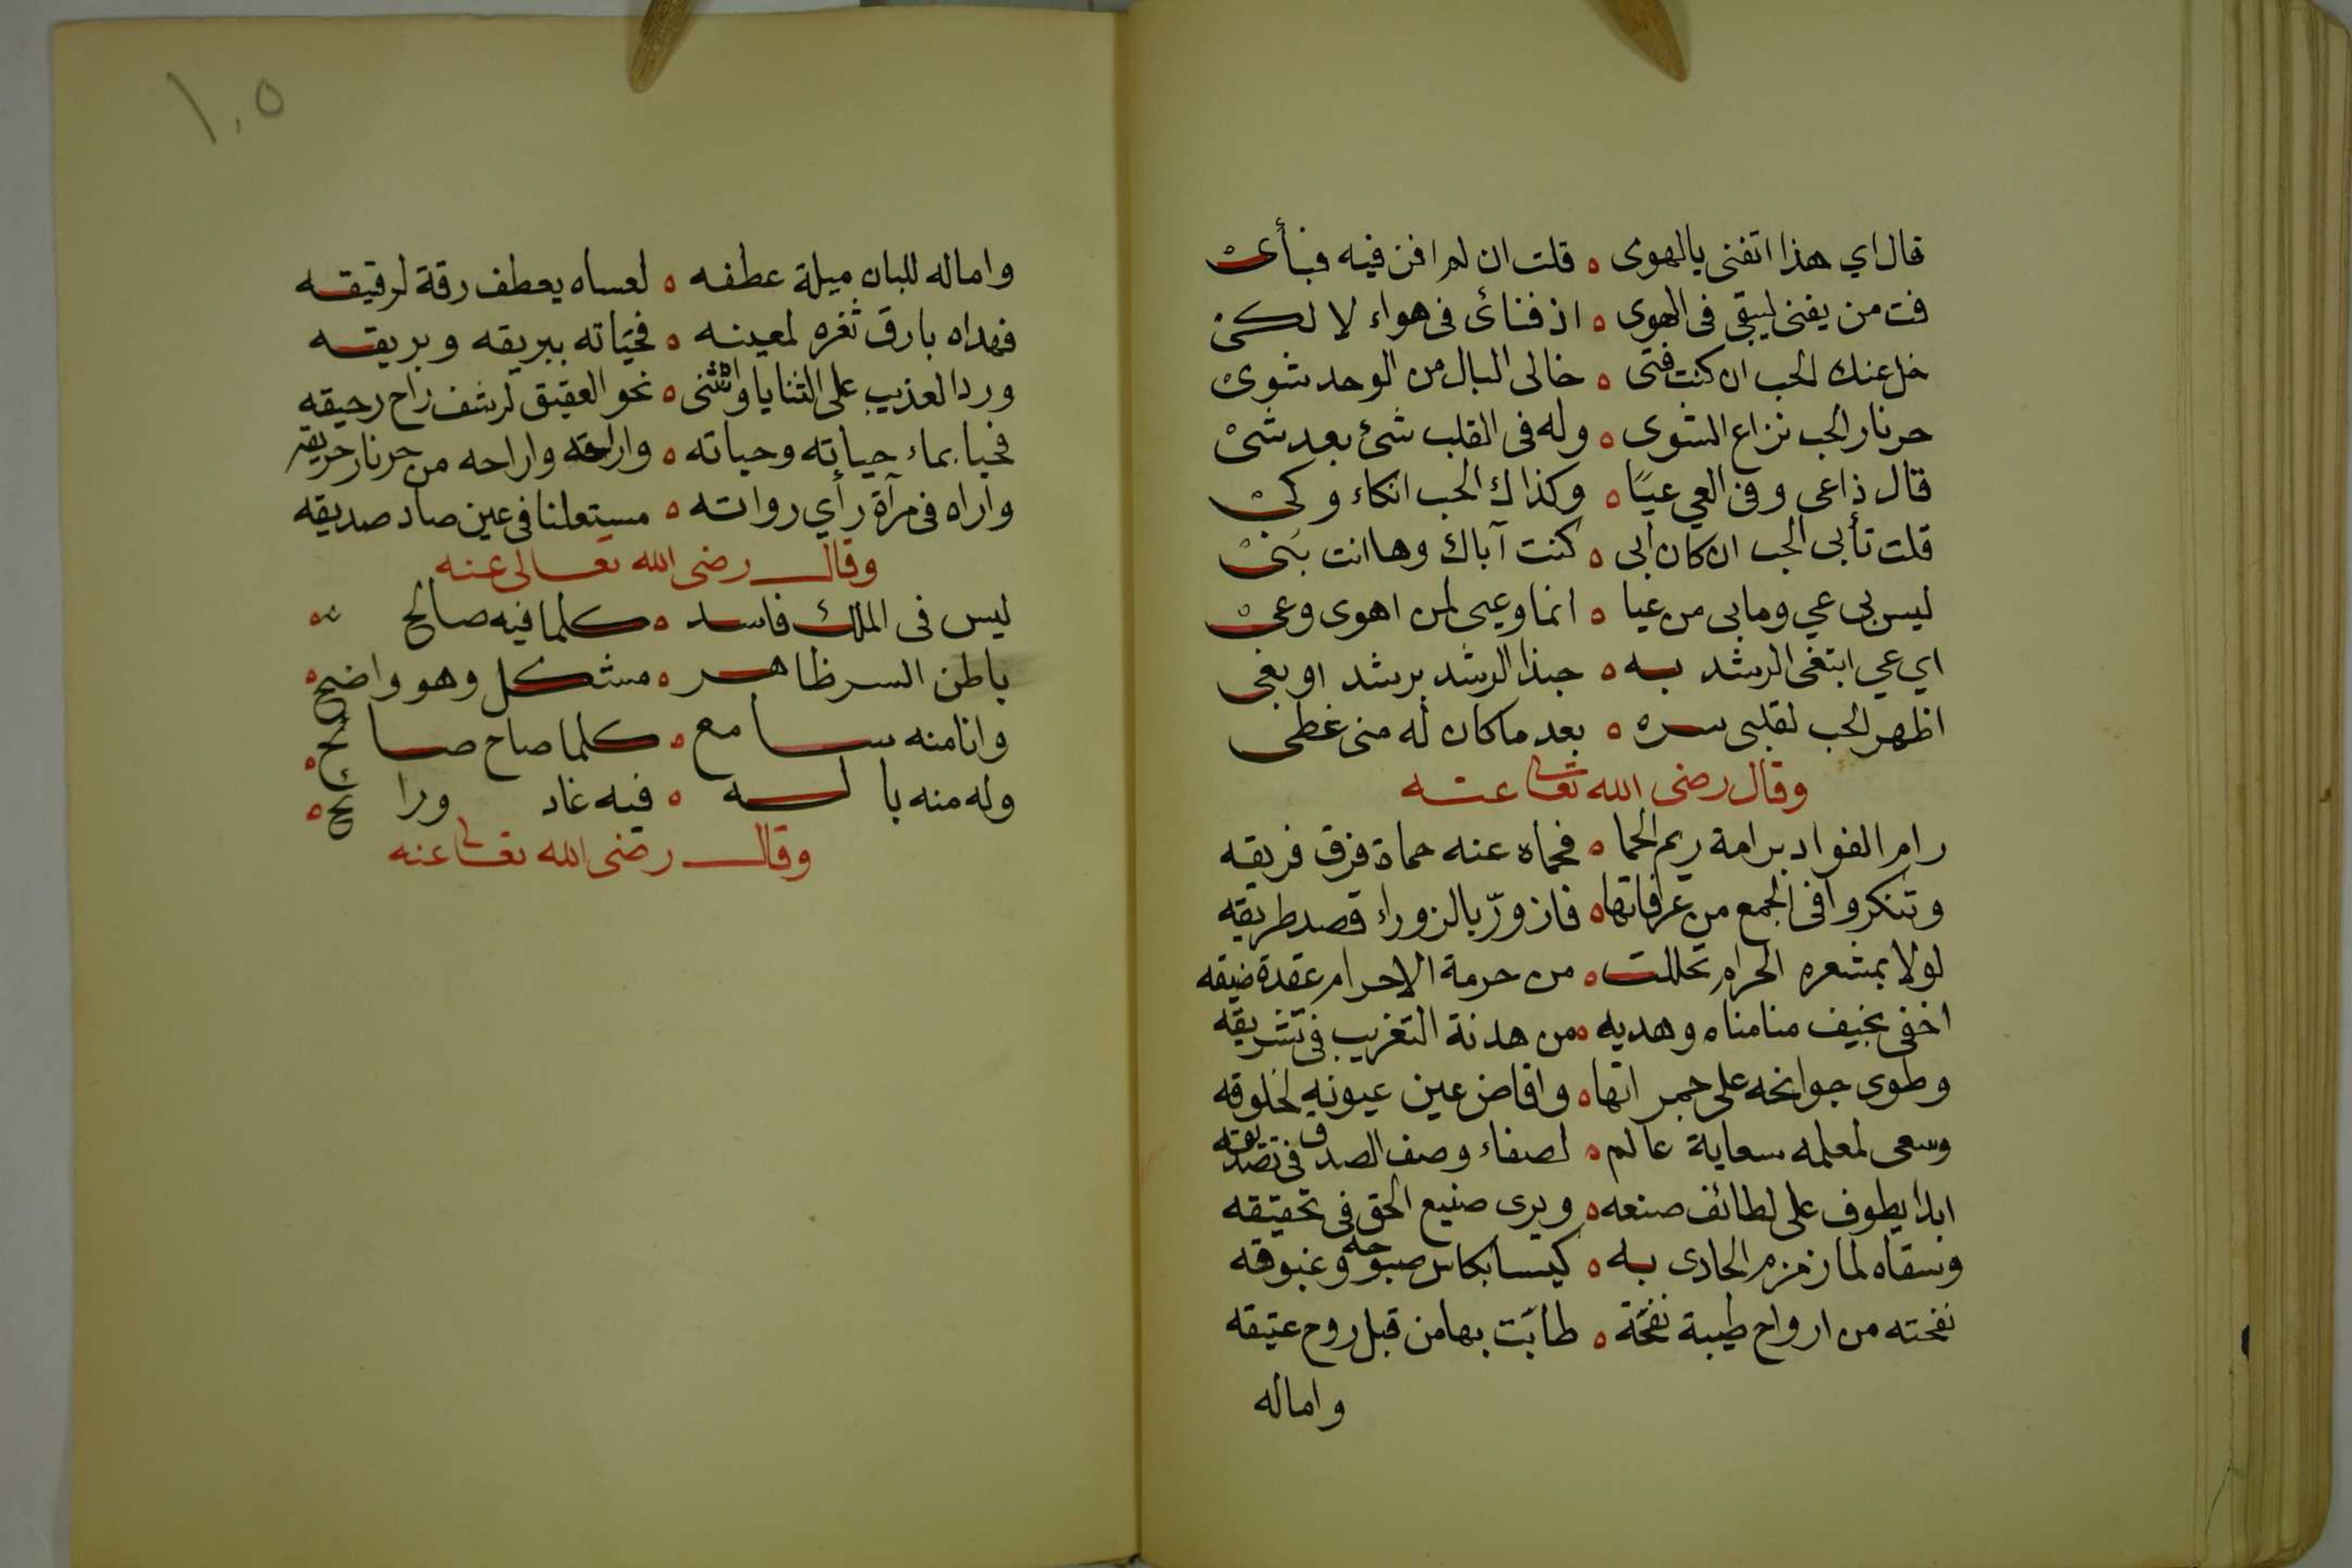 قال اي هذا اتفنى بالهوى ه قلت ان لم افن فيه فبأى
فت من يفنى ليبقى فى الهوى ه اذ فنائ فى هواء لا لكى
خل عنك الحب ان كنت فتى ه خالى البال من الوجد شوى
حر نار الحب نزاع الشوى ه وله فى القلب شئ بعد شئ
قال ذاعى وفن العي عيًا ه وكذاك الحب انكاء وكى
قلت تأبى الحب ان كان ابى ه كنت آباك وها انت بنى
ليس بى عي وما بى من عيا ه انما وعيى لمن اهوى وعى
اي عي ابتغى الرشد به ه حبذا الرشد برشد او بغى
اظهر الحب لقلبى سره ه بعد ما كان له منى غطى
وقال رضى الله تعالى عنه
رام الفواد برامة ريم الحما ه فحماه عنه حماة فرق فريقه
وتنكروا فى الجمع من عرفاتها ه فازورّ بالزوراء قصد طريقه
لولا بمشعره الحرام تحللت ه من حرمة الاحرام عقدة ضيقه
اخفى بخيف منا مناه وهديه ه من هدنة التغريب فى تشريقه
وطوى جوانحه على جمراتها ه وافاض عين عيونه لخلوقه
وسعى لمعلمه سعاية عالم ه لصفاء وصف الصدق فى تصديقه
ابدا يطوف على لطائف صنعه ه ويرى صنيع الحق فى تحقيقه
وسقاه لما زمزم الحادى به ه كيسا بكاس صبوحه وغبوقه
نفحته من ارواح طيبة نفحة ه طابت بها من قبل روح عتيقه
واماله
١٠٥
واماله للبان ميلة عطفه ه لعساه يعطف رقة لرقيقه
فهداه بارق ثغره لمعينه ه فحياته ببريقه وبريقه
ورد العذيب على الثنايا وانثنى ه نحو العقيق لرشف راح رحيقه
فحيا بماء حياته وحياته ه واراحه واراحه من حر نار حريقه
واراه فى مرآة رأي رواته ه مستعلنا فى عين صاد صديقه
وقال رضى الله تعالى عنه
ليس فى الملك فاسد ه كلما فيه صالح ه
باطن السر ظاهر ه مشكل وهو واضح ه
وانا منه سامع ه كلما صاح صائح ه
وله منه باله ه فيه غاد ورائح ه
وقال رضى الله تعالى عنه